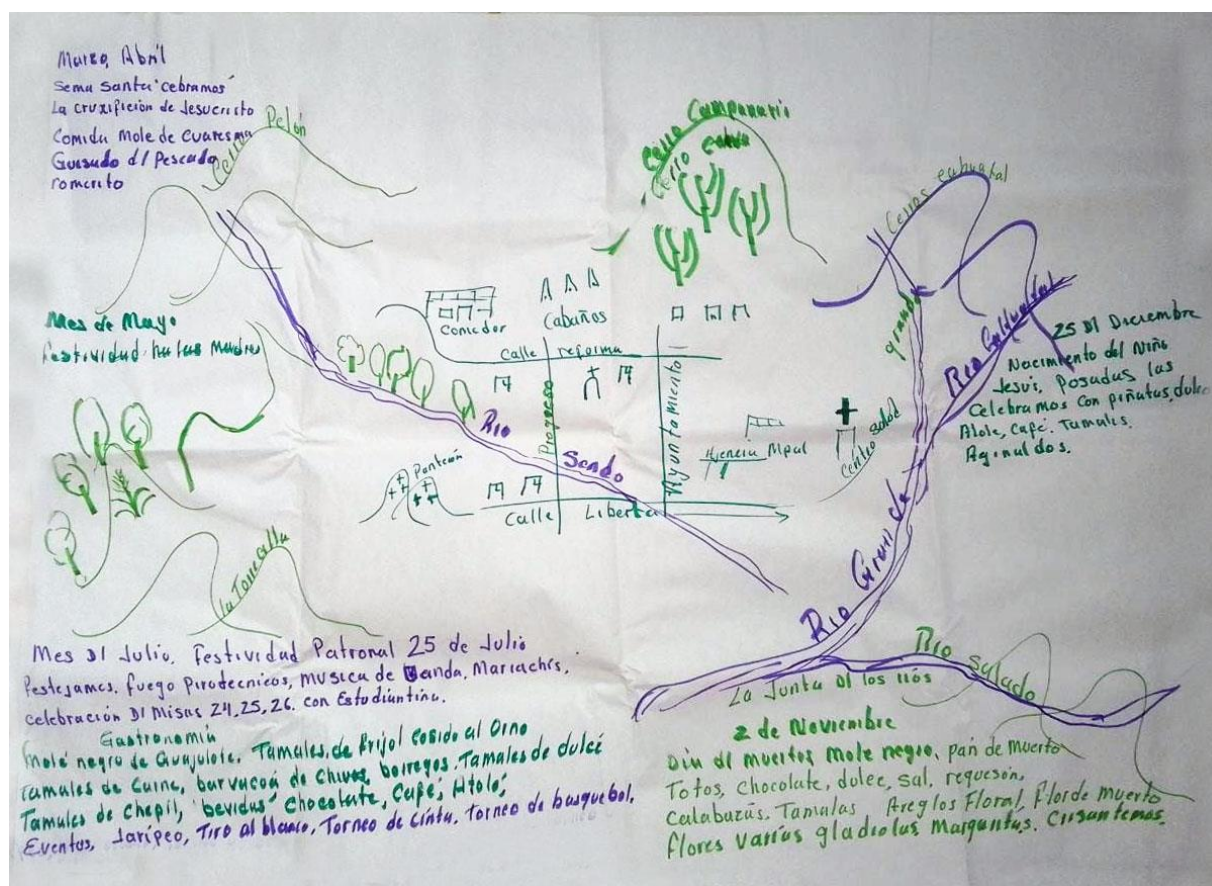 Marzo, Abril
Sema Santa "Cebramos"
La cruxifición de Jesucristo
Comida Mole de Cuaresma
Guisado dl Pescado
romerito
Cerro Pelón
Cerro Campanario
Cerro
Cerros
Mes de Mayo
festividad
las Madres
Comedor
Cabaños
Calle reforma
Progreso
Ayuntamiento
Rio
Sendo
Panteón
Calle Liberta
Mpal
Centro Salod
grande
Rio
25 Dl Diciembre
Nacimiento del Niño
Jesus, Posadas las
Celebramos con piñatas, dulce
Atole, Café. Tamales.
Aginaldos.
Rio Grande
Rio Salado
La Junta Dl los riós
Mes Dl Julio, Festividad Patronal 25 de Julio
Festejamos, fuego Pirotecnicos, musica de Banda, Mariachis,
celebración Dl Misas 24,25,26. con Estudiantina.
Gastronomia
mole negro de Guajolote, Tamales de frijol Cosido al Orno
tamales de Carne, barvacoa de Chivos, borregos. Tamales de dulce
Tamales de Chepil, "bevidas" Chocolate, Café, Atole,
Eventos, Jaripeo, Tiro al blanco, Torneo de Cinta, Torneo de basquebol,
2 de Noviembre
Dia dl muertos mole negro, pan de muerto
Totos, Chocolate, dolce, sal, requeson,
Calabazas, Tamalas Areglos Floral, flor de muerto
flores varias gladiolas Margaritas. Crisantemos.